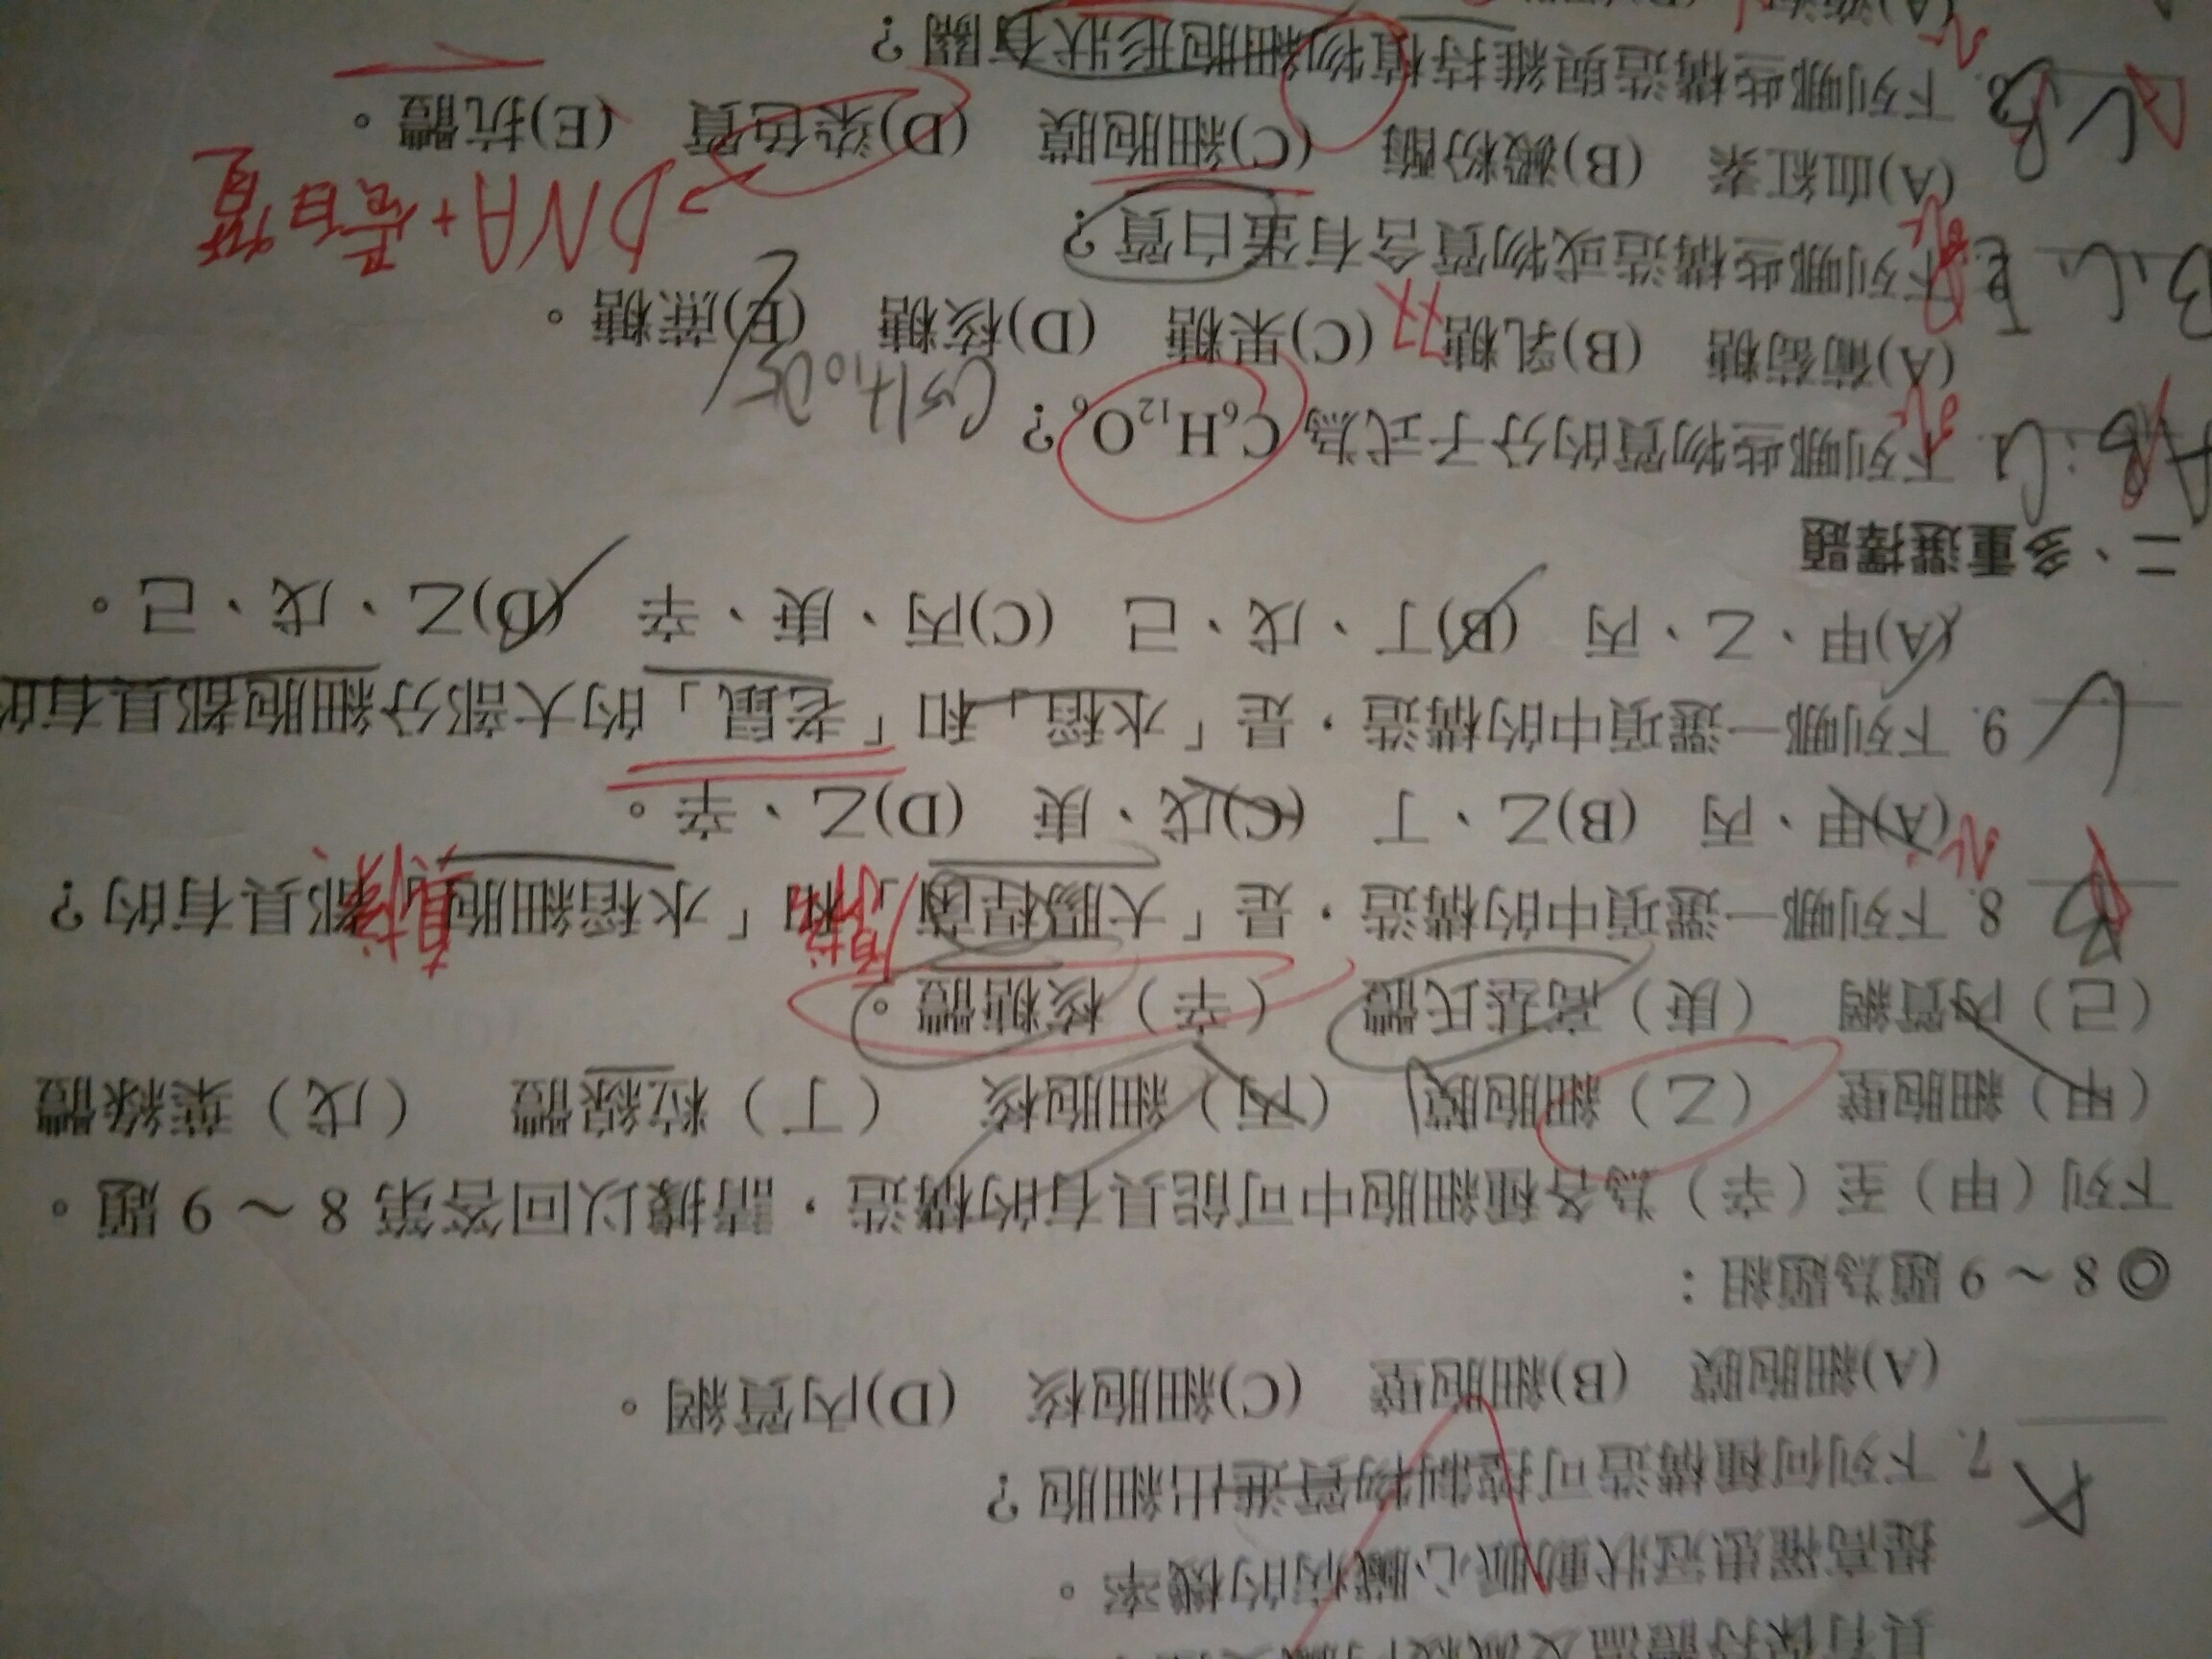 提高罹患冠狀動脈心臟病的機率。
A 7. 下列何種構造可控制物質進出細胞?
(A)細胞膜 (B)細胞壁 (C)細胞核 (D)內質網。
◎8~9題為題組:
下列(甲)至(辛)為各種細胞中可能具有的構造,請據以回答第8~9題。
(甲)細胞壁 (乙)細胞膜 (丙)細胞核 (丁)粒線體 (戊)葉綠體
(己)內質網 (庚)高基氏體 (辛)核糖體。
原核 真核
B 8. 下列哪一選項中的構造,是「大腸桿菌」和「水稻細胞」都具有的?
(A)甲、丙 (B)乙、丁 (C)戊、庚 (D)乙、辛。
C 9. 下列哪一選項中的構造,是「水稻」和「老鼠」的大部分細胞都具有的
(A)甲、乙、丙 (B)丁、戊、己 (C)丙、庚、辛 (D)乙、戊、己。
二、多重選擇題
下列哪些物質的分子式為 C₆H₁₂O₆? C5H10O5
(A)葡萄糖 (B)乳糖 (C)果糖 (D)核糖 (E)蔗糖。
下列哪些構造或物質含有蛋白質?
DNA+蛋白質
(A)血紅素 (B)澱粉酶 (C)細胞膜 (D)染色質 (E)抗體。
下列哪些構造與維持植物細胞形狀有關?